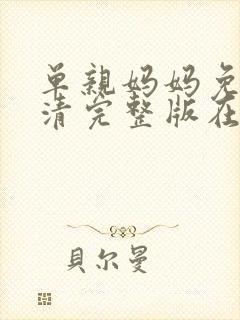 单親妈妈免
清完整版在
貝尔曼